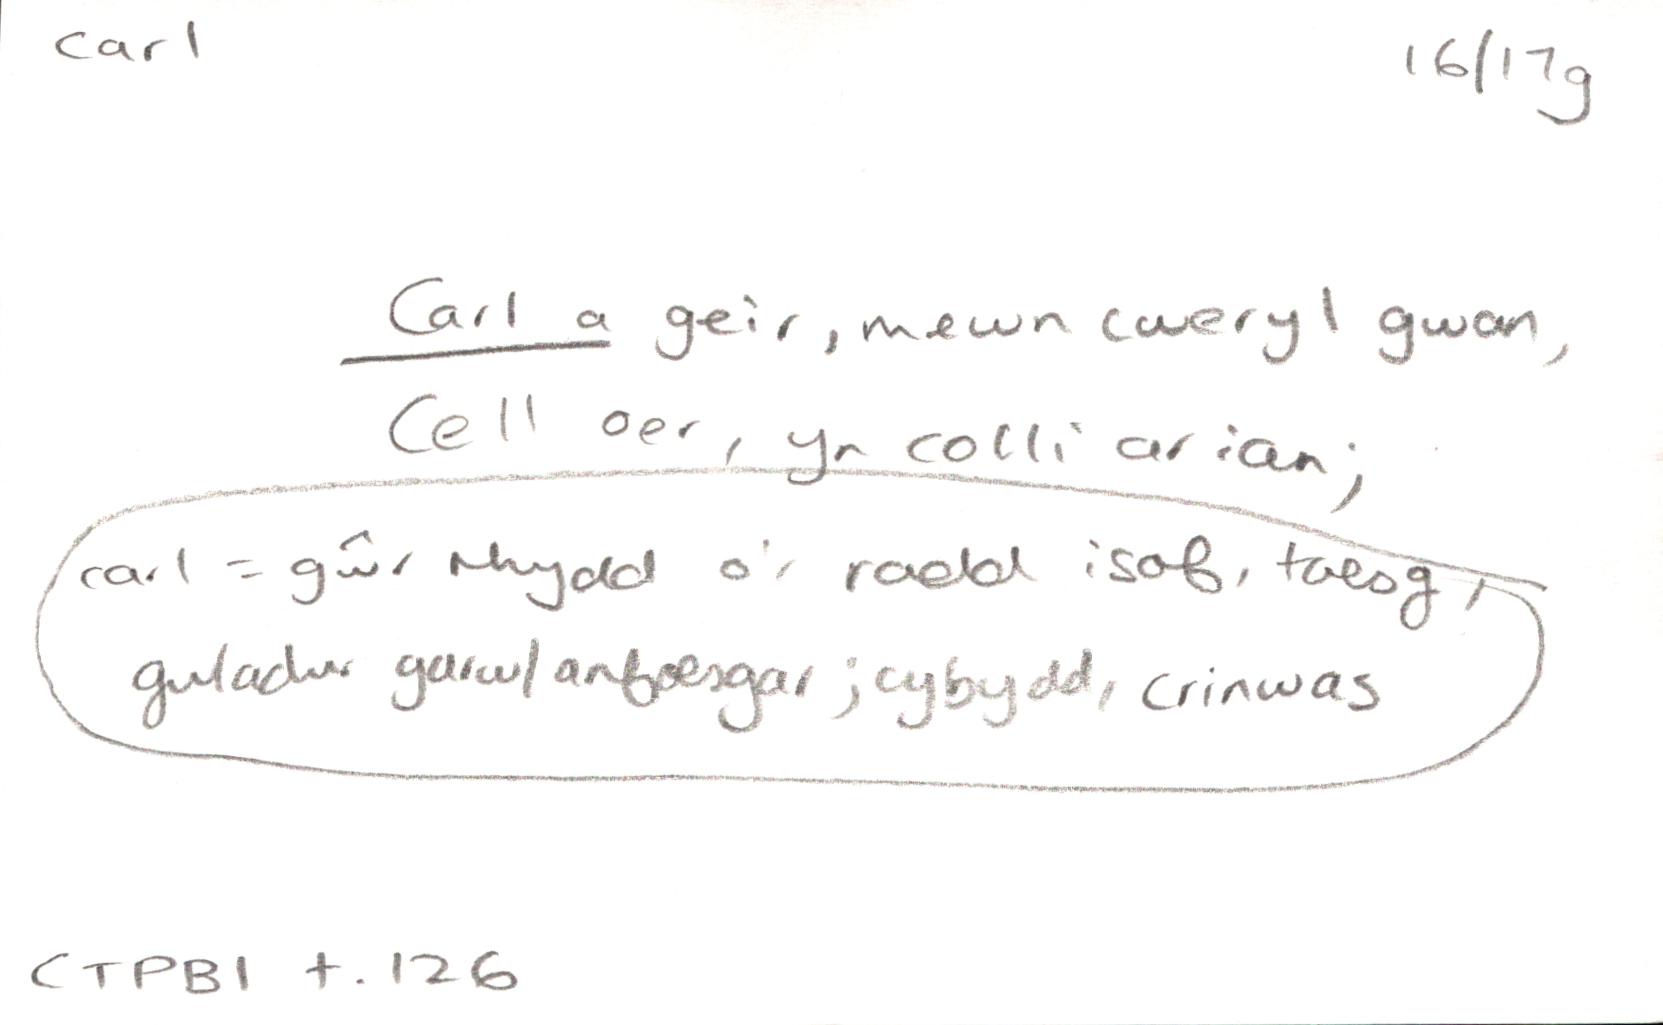 carl
16/17g
Carl a geir, mewn cweryl gwan,
Cell oer, yn colli arian;
carl = gŵr rhydd o'r radd isaf, taeog,
gwladwr garw/anfoesgar; cybydd, crinwas
CTPB1 t. 126